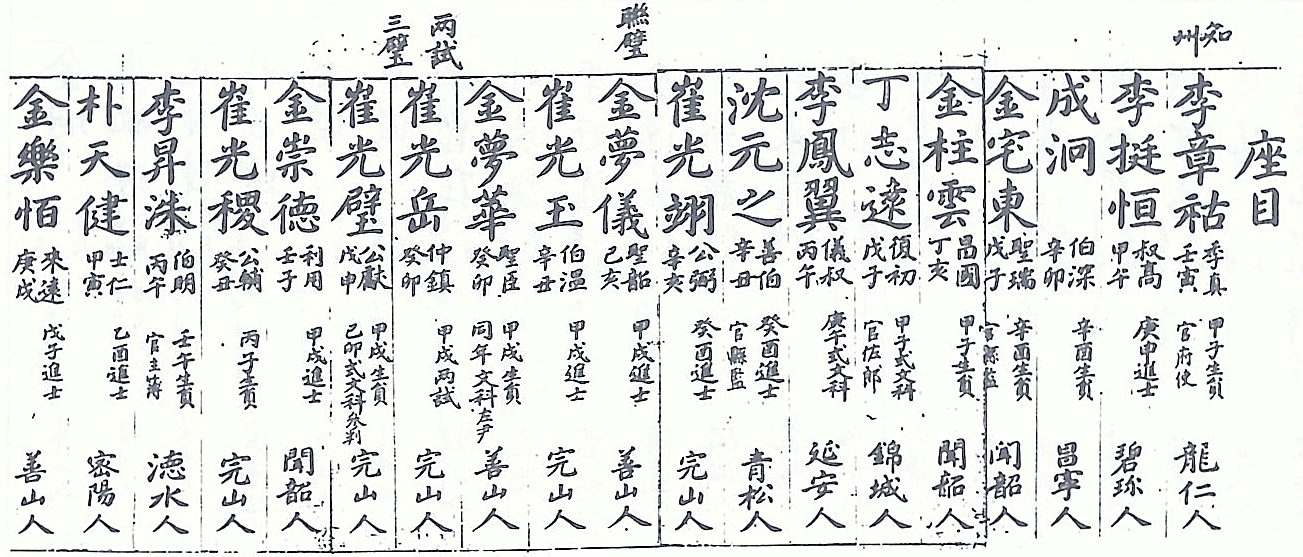 座目
知州
李章祜 季真 壬寅 甲子生員 官府使 龍仁人
李挺恒 叔高 甲午 庚申進士 碧珍人
成泂 伯深 辛卯 辛酉生員 昌寧人
金宅東 聖瑞 戊子 辛酉生員 官縣監 聞韶人
金柱雲 昌國 丁亥 甲子生員 聞韶人
丁志遠 復初 戊子 甲子式文科 官佐郎 錦城人
李鳳翼 儀叔 丙午 庚午式文科 延安人
沈元之 善伯 辛丑 癸酉進士 官縣監 青松人
崔光翊 公弼 辛亥 癸酉進士 完山人
聯璧
金夢儀 聖韶 己亥 甲戌進士 善山人
崔光玉 伯温 辛丑 甲戌進士 完山人
金夢華 聖臣 癸卯 甲戌生員 同年文科左尹 善山人
兩試
崔光岳 仲鎮 癸卯 甲戌兩試 完山人
三璧
崔光璧 公獻 戊申 甲戌生員 己卯式文科參判 完山人
金崇德 利用 壬子 甲戌進士 聞韶人
崔光稷 公輔 癸丑 丙子生員 完山人
李昇洙 伯明 丙午 壬午生員 官主簿 德水人
朴天健 士仁 甲寅 乙酉進士 密陽人
金樂恒 來遠 庚戌 戊子進士 善山人